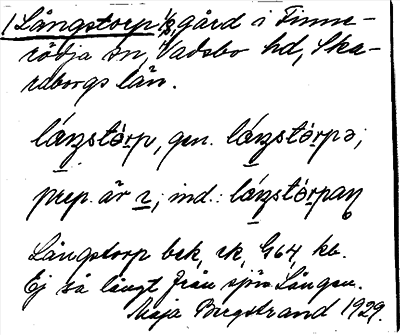 1 Långstorp 1/8, gård i Finne-
rödja sn, Vadsbo hd, Ska-
raborgs län.
láŋstòrp, gen. láŋstòrpə;
prep. är ɩ; ind.: láŋstòrpaŋ
Långstorp bek, rk, G64, kb.
Ej så långt från sjön Lången.
Maja Bergstrand 1929.